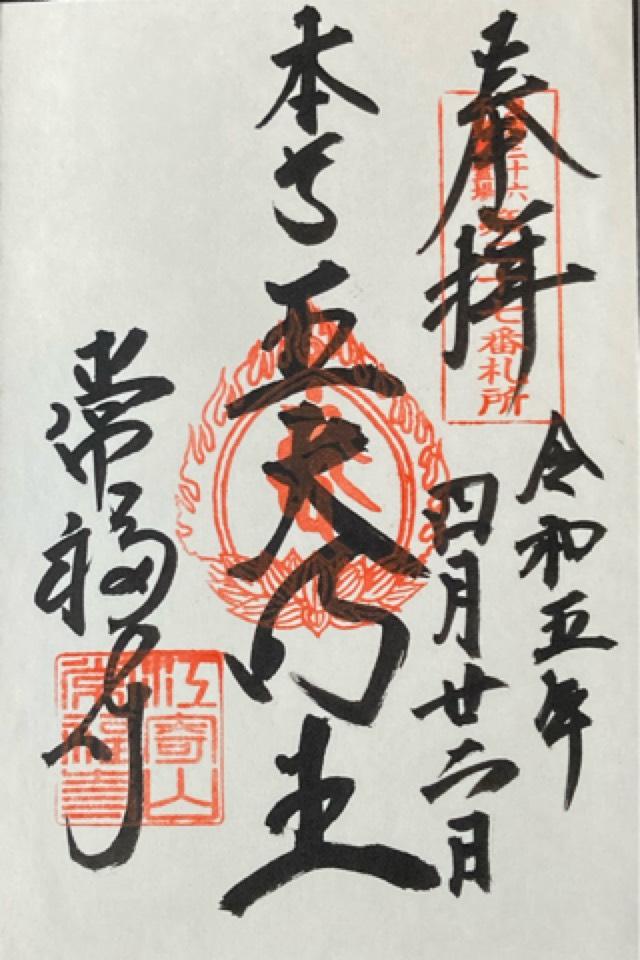 奉拝
三十六
七番札所
令和五年
四月廿二日
本尊 五大明王
常福寺
江寄山
常福寺